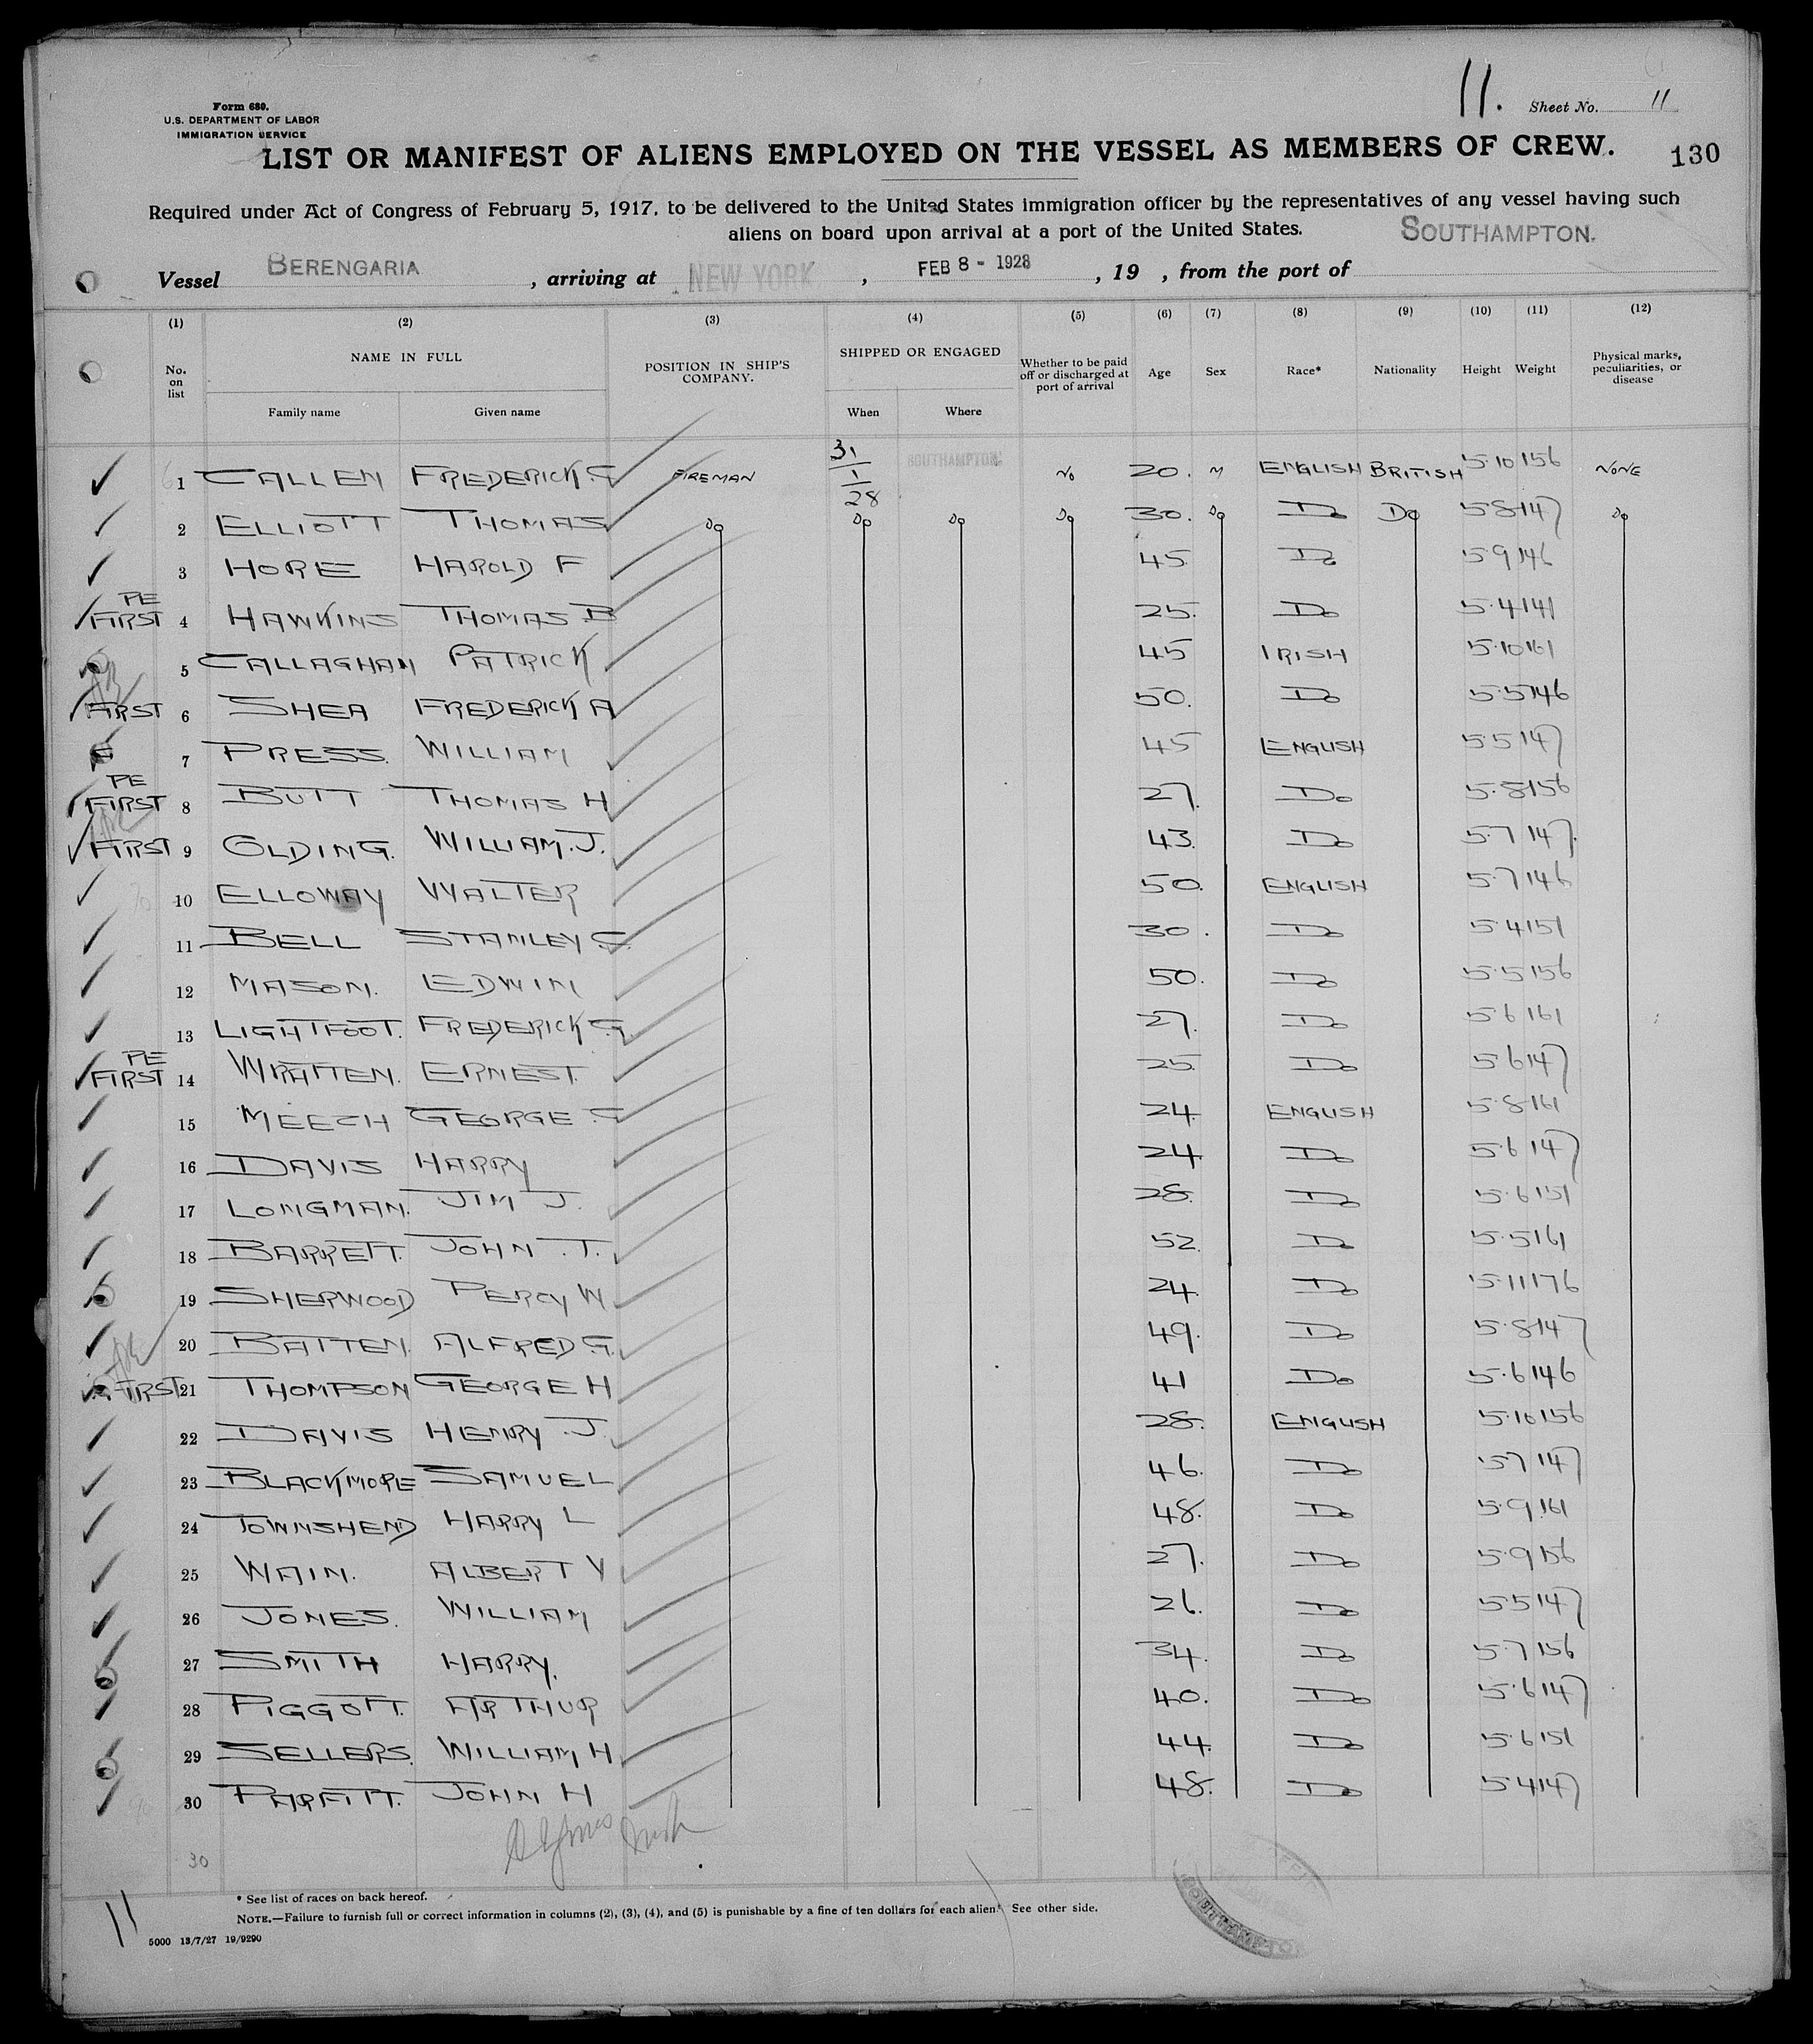 11. Sheet No. 11
Form 680.
U.S. DEPARTMENT OF LABOR
IMMIGRATION SERVICE
LIST OR MANIFEST OF ALIENS EMPLOYED ON THE VESSEL AS MEMBERS OF CREW. 130
Required under Act of Congress of February 5, 1917, to be delivered to the United States immigration officer by the representatives of any vessel having such
aliens on board upon arrival at a port of the United States.
Vessel BERENGARIA, arriving at NEW YORK, FEB 8 - 1928, 19 , from the port of SOUTHAMPTON.
(1) (2) (3) (4) (5) (6) (7) (8) (9) (10) (11) (12)
No. on list NAME IN FULL Family name Given name POSITION IN SHIP'S COMPANY. SHIPPED OR ENGAGED When Where Whether to be paid off or discharged at port of arrival Age Sex Race* Nationality Height Weight Physical marks, peculiarities, or disease
1 CALLEN FREDERICK.G FIREMAN 31/1/28 SOUTHAMPTON. No 20. M ENGLISH BRITISH 5.10 156 NONE
2 ELLIOTT THOMAS Do Do Do Do 30. Do Do Do 5.8 147 Do
3 HORE HAROLD F 45 Do 5.9 146
PE FIRST 4 HAWKINS THOMAS.B 25. Do 5.4 141
5 CALLAGHAN PATRICK 45 IRISH 5.10 161
FIRST 6 SHEA FREDERICK A 50. Do 5.5 146
7 PRESS. WILLIAM 45 ENGLISH 5.5 147
PE FIRST 8 BUTT THOMAS H 27. Do 5.8 156
FIRST 9 OLDING. WILLIAM.J. 43. Do 5.7 147.
10 ELLOWAY WALTER 50. ENGLISH 5.7 146
11 BELL STANLEY C. 30. Do 5.4 151
12 MASON. EDWIN 50. Do 5.5 156
13 LIGHTFOOT. FREDERICK G. 27. Do 5.6 161
PE FIRST 14 WRATTEN. ERNEST. 25. Do 5.6 147
15 MEECH GEORGE C 24. ENGLISH 5.8 161
16 DAVIS HARRY 24. Do 5.6 147
17 LONGMAN. JIM J. 28. Do 5.6 151
18 BARRETT. JOHN.T. 52. Do 5.5 161
19 SHERWOOD PERCY W 24. Do 5.11 176
20 BATTEN. ALFRED G. 49. Do 5.8 147
FIRST 21 THOMPSON GEORGE H 41 Do 5.6 146
22 DAVIS HENRY.J. 28. ENGLISH 5.10 156
23 BLACKMORE SAMUEL 46. Do 5.7 147
24 TOWNSHEND HARRY L 48. Do 5.9 161
25 WAIN. ALBERT V 27. Do 5.9 156
26 JONES. WILLIAM 26. Do 5.5 147
27 SMITH HARRY. 34. Do 5.7 156
28 PIGGOTT. ARTHUR 40. Do 5.6 147
29 SELLERS. WILLIAM H. 44. Do 5.6 151
30 PARFITT. JOHN H 48. Do 5.4 147
30
* See list of races on back hereof.
NOTE.—Failure to furnish full or correct information in columns (2), (3), (4), and (5) is punishable by a fine of ten dollars for each alien. See other side.
11
5000 13/7/27 19/9290